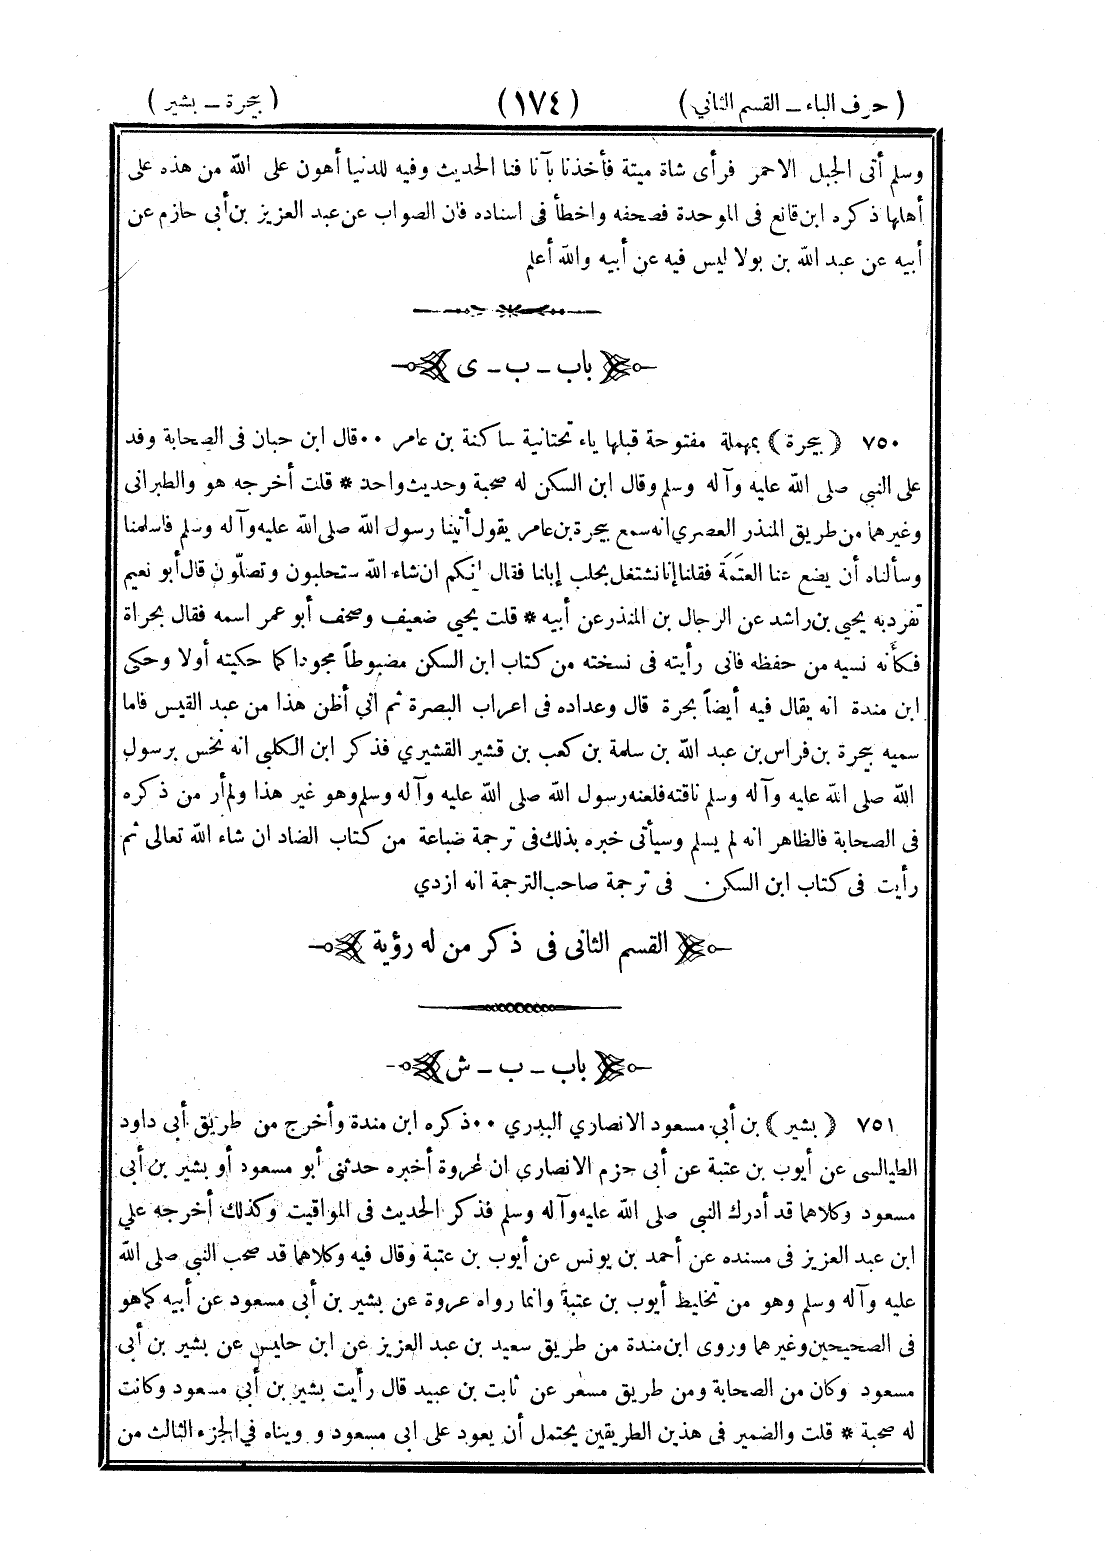 ( حرف الباء – القسم الثاني ) ( ١٧٤ ) ( بيحرة – بشير )
وسلم أتى الجبل الاحمر فرأى شاة ميتة فأخذنا بآنا فنا الحديث وفيه للدنيا أهون على الله من هذه على
أهلها ذكره ابن قانع فى الموحدة فصحفه واخطأ فى اسناده فان الصواب عن عبد العزيز بن أبي حازم عن
أبيه عن عبد الله بن بولا ليس فيه عن أبيه والله أعلم
باب – ب – ى
٧٥٠ ( بيحرة ) بمهملة مفتوحة قبلها ياء تحتانية ساكنة بن عامر ٠٠ قال ابن حبان فى الصحابة وفد
على النبي صلى الله عليه وآله وسلم وقال ابن السكن له صحبة وحديث واحد * قلت أخرجه هو والطبرانى
وغيرهما من طريق المنذر العصري انه سمع بيحرة بن عامر يقول أتينا رسول الله صلى الله عليه وآله وسلم فاسلمنا
وسألناه أن يضع عنا العتَمَة فقلنا إنا نشتغل بحلب إبلنا فقال انكم ان شاء الله ستحلبون وتصلّون قال أبو نعيم
تفرد به يحيى بن راشد عن الرجال بن المنذر عن أبيه * قلت يحيى ضعيف وصحف أبو عمر اسمه فقال بحراة
فكأنه نسيه من حفظه فانى رأيته فى نسخته من كتاب ابن السكن مضبوطاً مجودا كما حكيته أولا وحكى
ابن مندة انه يقال فيه أيضاً بحرة قال وعداده فى اعراب البصرة ثم اني أظن هذا من عبد القيس فاما
سميه بيحرة بن فراس بن عبد الله بن سلمة بن كعب بن قشير القشيري فذكر ابن الكلبي انه نخس برسول
الله صلى الله عليه وآله وسلم ناقته فلعنه رسول الله صلى الله عليه وآله وسلم وهو غير هذا ولم أر من ذكره
فى الصحابة فالظاهر انه لم يسلم وسيأتى خبره بذلك فى ترجمة ضباعة من كتاب الضاد ان شاء الله تعالى ثم
رأيت فى كتاب ابن السكن فى ترجمة صاحب الترجمة انه ازدي
القسم الثانى فى ذكر من له رؤية
باب – ب – ش
٧٥١ ( بشير ) بن أبي مسعود الانصاري البدري ٠٠ ذكره ابن مندة وأخرج من طريق أبى داود
الطيالسى عن أيوب بن عتبة عن أبى حزم الانصاري ان عروة أخبره حدثنى أبو مسعود أو بشير بن أبى
مسعود وكلاهما قد أدرك النبي صلى الله عليه وآله وسلم فذكر الحديث فى المواقيت وكذلك أخرجه علي
ابن عبد العزيز فى مسنده عن أحمد بن يونس عن أيوب بن عتبة وقال فيه وكلاهما قد صحب النبي صلى الله
عليه وآله وسلم وهو من تخليط أيوب بن عتبة وانما رواه عروة عن بشير بن أبى مسعود عن أبيه كما هو
فى الصحيحين وغيرهما وروى ابن مندة من طريق سعيد بن عبد العزيز عن ابن حليس عن بشير بن أبى
مسعود وكان من الصحابة ومن طريق مسعر عن ثابت بن عبيد قال رأيت بشير بن أبي مسعود وكانت
له صحبة * قلت والضمير فى هذين الطريقين يحتمل أن يعود على ابى مسعود و ويناه في الجزء الثالث من